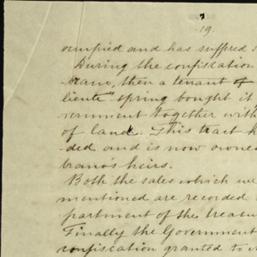 19.
occupied and has suffered
During the confiscation
then a tenant of
liente" spring bought it
vernment together with
of land. This tract
ded and is now owned
brano's heirs.
Both the sales which we
mentioned are recorded
partment of the treasu
Finally the Government
confiscation granted to